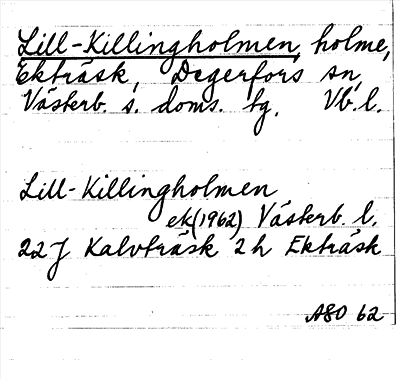 Lill-Killingholmen, holme,
Ekträsk, Degerfors sn,
Västerb. s. doms. tg. Vb. l.
Lill-Killingholmen
ek(1962) Västerb. l.
22J Kalvträsk 2h Ekträsk
ASO 62